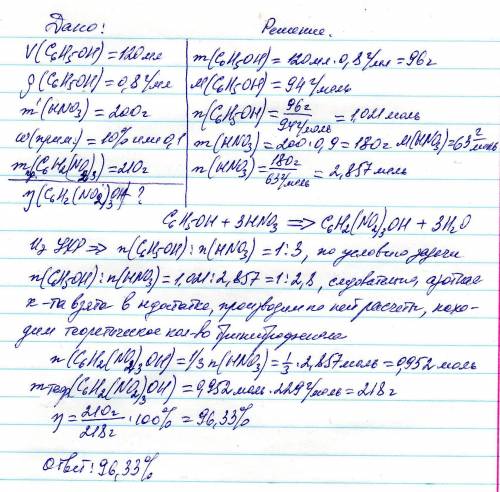 Дано:
Решение.
V(C6H5-OH)=120мл
ρ(C6H5-OH)=0,8г/мл
m'(HNO3)=200г
ω(прим.)=10% или 0,1
mпр(C6H2(NO2)3)=210г
η(C6H2(NO2)3OH-?
m(C6H5-OH)=120мл·0,8г/мл=96г
M(C6H5-OH)=94г/моль
n(C6H5-OH)=96г/94г/моль=1,021моль
m(HNO3)=200·0,9=180г M(HNO3)=63г/моль
n(HNO3)=180г/63г/моль=2,857моль
C6H5-OH+3HNO3⇒C6H2(NO2)3OH+3H2O
Из УХР⇒n(C6H5-OH):n(HNO3)=1:3, по условию задачи
n(C6H5-OH):n(HNO3)=1,021:2,857=1:2,8, следовательно, азотная
к-та взята в недостатке, производим по ней расчеты, нахо-
дим теоретическое кол-во тринитрофенола
n(C6H2(NO2)3OH)=1/3n(HNO3)=1/3·2,857моль=0,952моль
mтеор(C6H2(NO2)3OH)=0,952моль·229г/моль=218г
η=210г/218г·100%=96,33%
Ответ: 96,33%